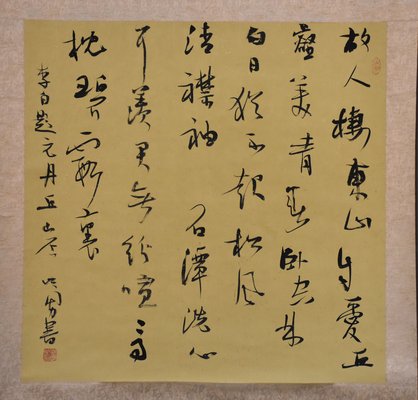 故人棲東山自愛丘
壑美青春卧空林
白日猶不起松風
清襟袖石潭洗心
耳羨君無紛喧高
枕碧霞裏
李白題元丹丘山居 書